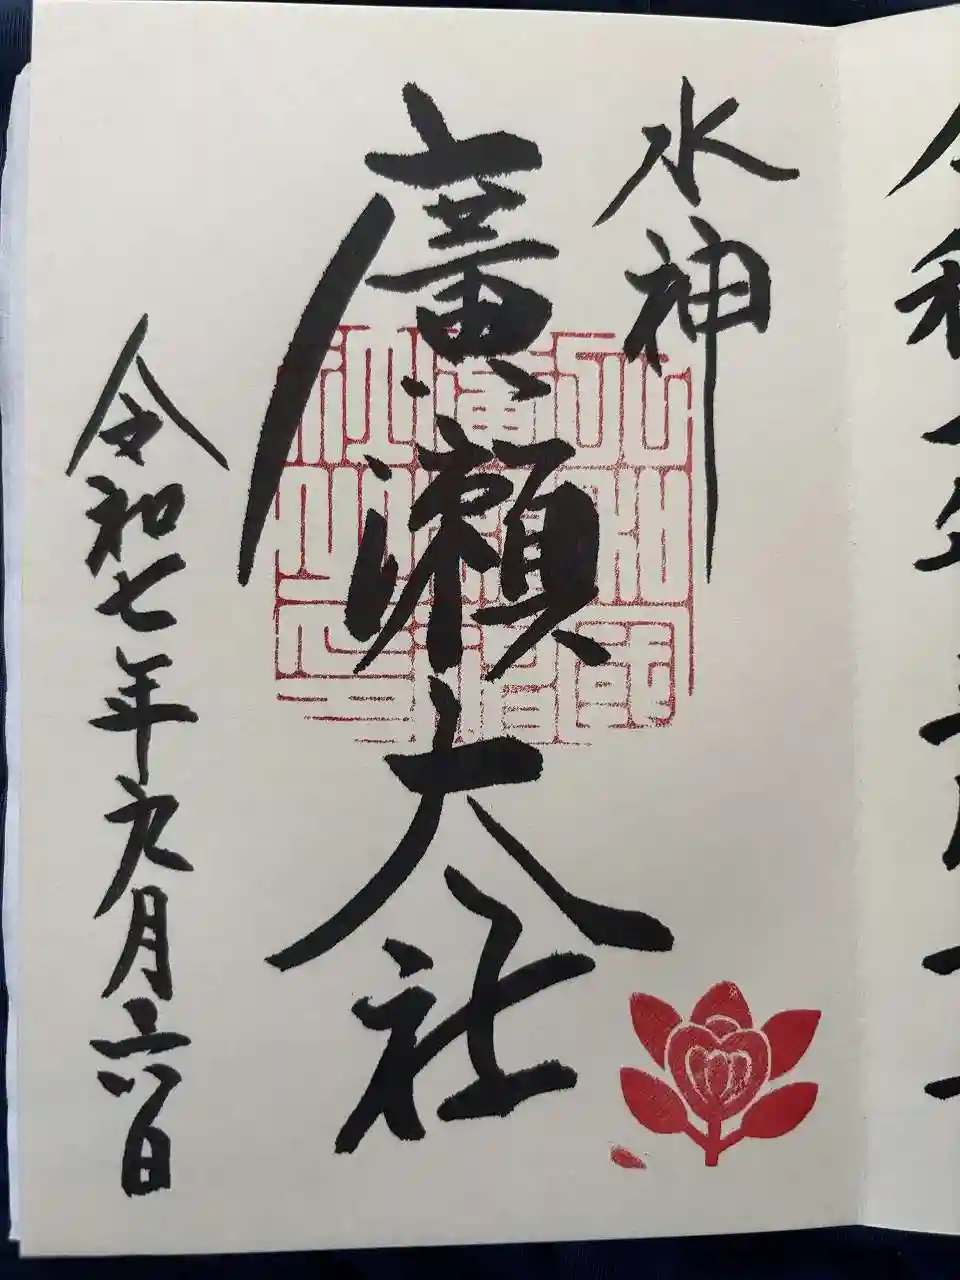 水神
廣瀬大社
令和七年九月六日